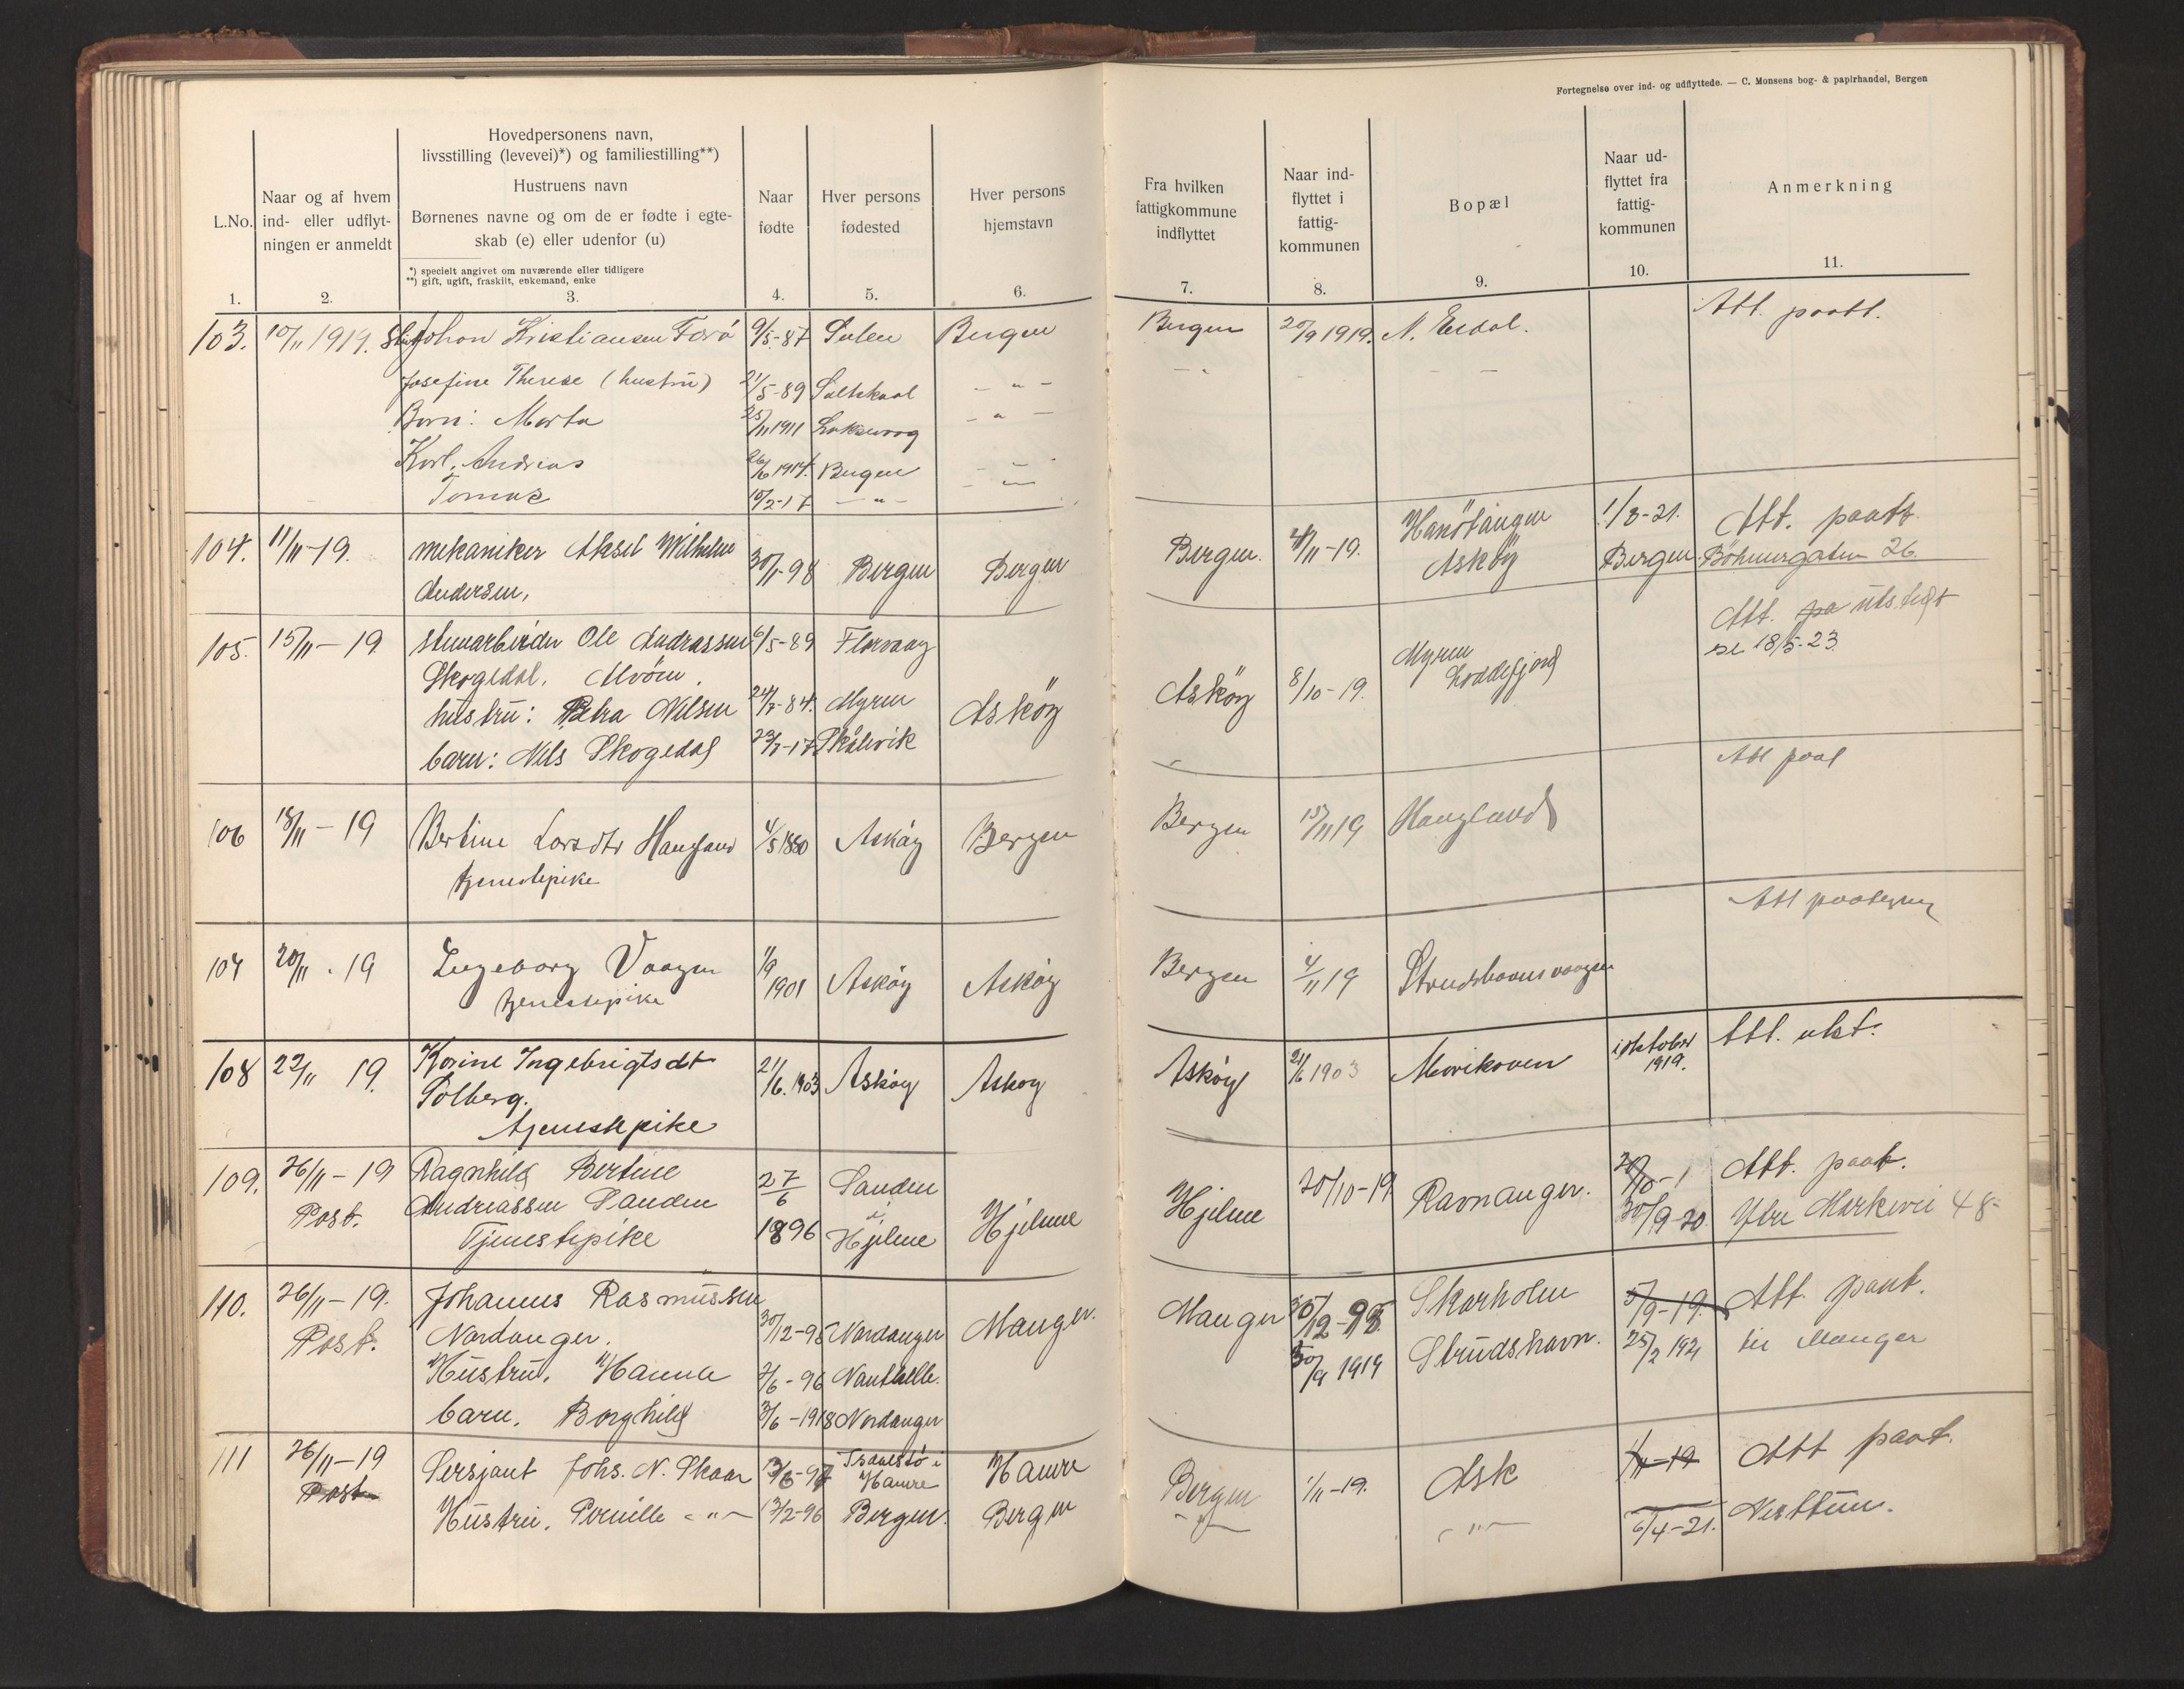 Fortegnelse over ind- og udflyttede. — C. Monsens bog- & papirhandel, Bergen
L.No.
1.
Naar og af hvem
ind- eller udflyt-
ningen er anmeldt
2.
Hovedpersonens navn,
livsstilling (levevei)*) og familiestilling**)
Hustruens navn
Børnenes navne og om de er fødte i egte-
skab (e) eller udenfor (u)
*) specielt angivet om nuværende eller tidligere
**) gift, ugift, fraskilt, enkemand, enke
3.
Naar
fødte
4.
Hver persons
fødested
5.
Hver persons
hjemstavn
6.
Fra hvilken
fattigkommune
indflyttet
7.
Naar ind-
flyttet i
fattig-
kommunen
8.
Bopæl
9.
Naar ud-
flyttet fra
fattig-
kommunen
10.
Anmerkning
11.
103. 10/11 1919. Johan Kristiansen 9/5-87 Sulen Bergen Bergen 20/9 1919. N. Erdal. Att. paatt.
Josefine Therese (hustru) 21/5-89 — " —
Barn: Marta 25/11 1911 Laksevaag — " —
Karl. Andreas 26/6 1914. Bergen — " —
Tomas 10/2-17 — " —
104. 11/11-19. mekaniker Aksel Wilhelm 30/1-98 Bergen Bergen Bergen. 4/11-19. Hanøtangen 1/8-21. Att. paatt
Andersen, Askøy Bergen. Böhmergaten 26.
105. 15/11-19 stenarbeider Ole Andrassen 6/5-89 Florvaag Att. pa utstedt
Skogedal. Alvøen. Myren se 18/5-23.
hustru: Petra Nilsen 24/7-84. Myren Askøy Askøy 8/10-19. Loddefjord
barn: Nils Skogedal 23/7-17 Skålevik
106 18/11-19 Bertine Larsdtr Haugland 4/5 1880 Askøy Bergen Bergen 15/11 19 Haugland Att paat
tjenestepike
107 20/11.19 Ingeborg Vaagen 11/9 1901 Askøy Askøy Bergen 4/11 19 Strudshavnvaagen Att paategning
tjenestepike
108 22/11 19. Karine Ingebrigtsdt 21/6.1903 Askøy Askøy Askøy 21/6 1903 Mevikoven i oktober 1919. Att. utst.
Solberg.
tjenestepike
109. 26/11-19 Ragnhild Bertine 27/6 Sanden Hjelme Hjelme 20/10-19 Ravnanger. Att. paat.
Post. Andreassen Sanden 1896 i Hjelme 30/9-20 Ytre Markevei 48-
Tjenestepike
110. 26/11-19. Johannes Rasmussen 30/12-98 Nordanger Manger. Manger Skarholm 5/9-19. Att. paat.
Post. Nordanger. 30/9 1919 Strudshavn. 25/2 1921 til Manger
Hustru. Hanna 7/6-96
barn. Borghild 3/6-1918 Nordanger
111 26/11-19 Sersjant Johs. N. Skaar Hamre Hamre Bergen 1/11-19. Ask 1/11-19 Att paat.
Post Hustru. Pernille — " — 13/2-96 Bergen. Bergen — " — — " — 6/4-21. Nesttun.